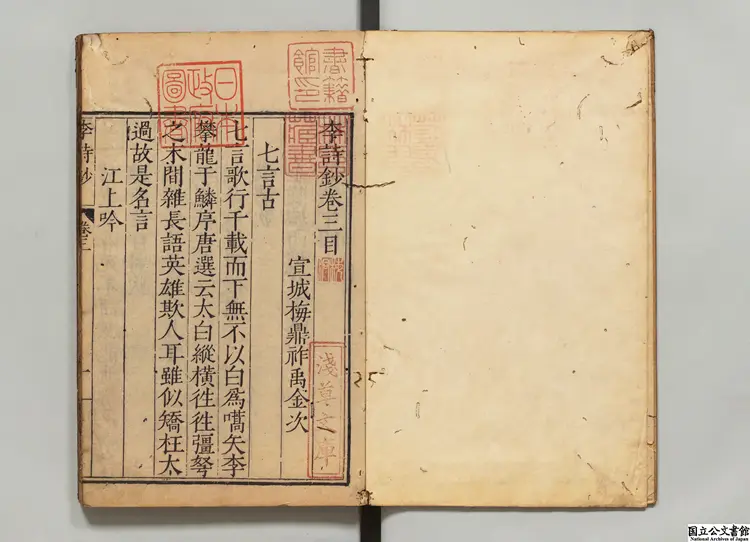 李詩鈔卷三目
宣城梅鼎祚禹金次
七言古
七言歌行千載而下無不以白爲嚆矢李
攀龍于鱗序唐選云太白縱橫徃徃彊弩
之末間雜長語英雄欺人耳雖似矯枉太
過故是名言
江上吟
李詩鈔
卷三
一
日本
政府
圖書
書籍
館印
淺草文庫
國立公文書館
National Archives of Japan